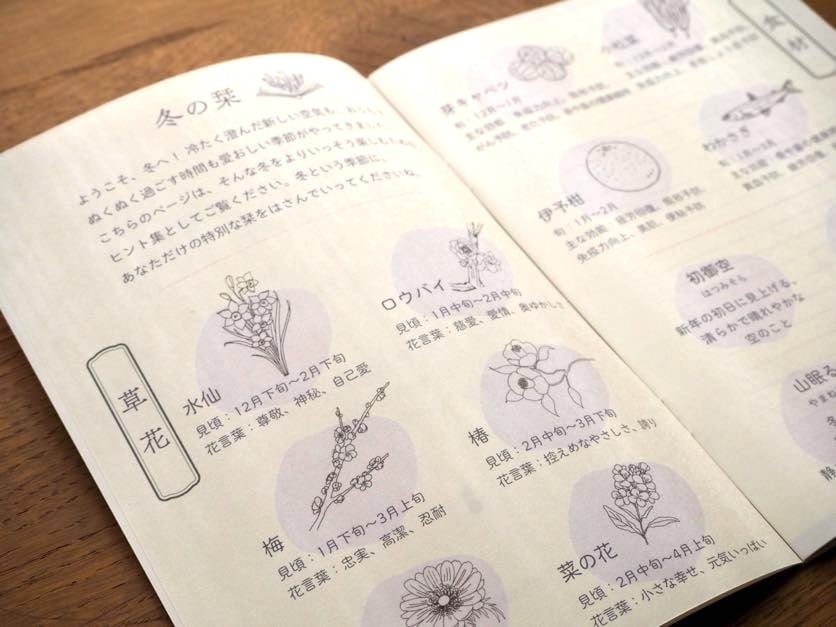 冬の栞
ようこそ、冬へ！冷たく澄んだ新しい空気も、
ぬくぬく過ごす時間も愛おしい季節がやってきました。
こちらのページは、そんな冬をよりいっそう楽しむための
ヒント集としてご覧ください。冬という季節に、
あなただけの特別な栞をはさんでいってくださいね。
草花
水仙
見頃：12月下旬〜2月下旬
花言葉：尊敬、神秘、自己愛
ロウバイ
見頃：1月中旬〜2月中旬
花言葉：慈愛、愛情、奥ゆかしさ
梅
見頃：1月下旬〜3月上旬
花言葉：忠実、高潔、忍耐
椿
見頃：2月中旬〜3月下旬
花言葉：控えめなやさしさ、誇り
菜の花
見頃：2月中旬〜4月上旬
花言葉：小さな幸せ、元気いっぱい
食材
芽キャベツ
旬：12月〜1月
小松菜
伊予柑
旬：1月〜2月
主な効能：疲労回復、風邪予防、
免疫力向上、美肌、便秘予防
わかさぎ
旬：1月〜3月
初御空
はつみそら
新年の初日に見上げる、
清らかで晴れやかな
空のこと
山眠る